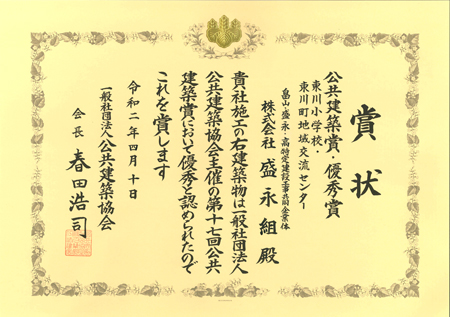 賞状
公共建築賞・優秀賞
東川小学校・
東川町地域交流センター
畠山・盛永・高特定建設工事共同企業体
株式会社 盛永組 殿
貴社施工の右建築物は一般社団法人
公共建築協会主催の第十七回公共
建築賞において優秀と認められたので
これを賞します
令和二年四月十日
一般社団法人公共建築協会
会長 春田浩司